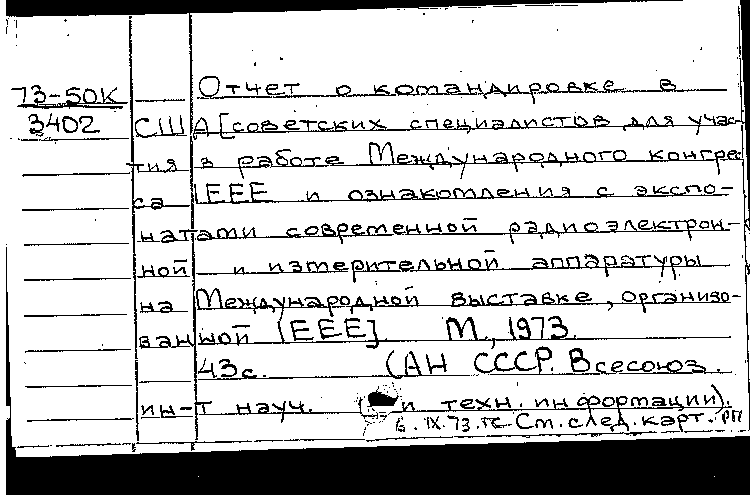 Отчет о командировке в
73-50К
3402
США [советских специалистов для учас-
тия в работе Международного конгрес
са IEEE и ознакомления с экспо-
натами современной радиоэлектрон-
ной и измерительной аппаратуры
на Международной выставке, организо-
ванной IEEE] М., 1973.
43с. (АН СССР. Всесоюз.
ин-т науч. и техн. информации).
6.IX.73. См. след. карт. РП